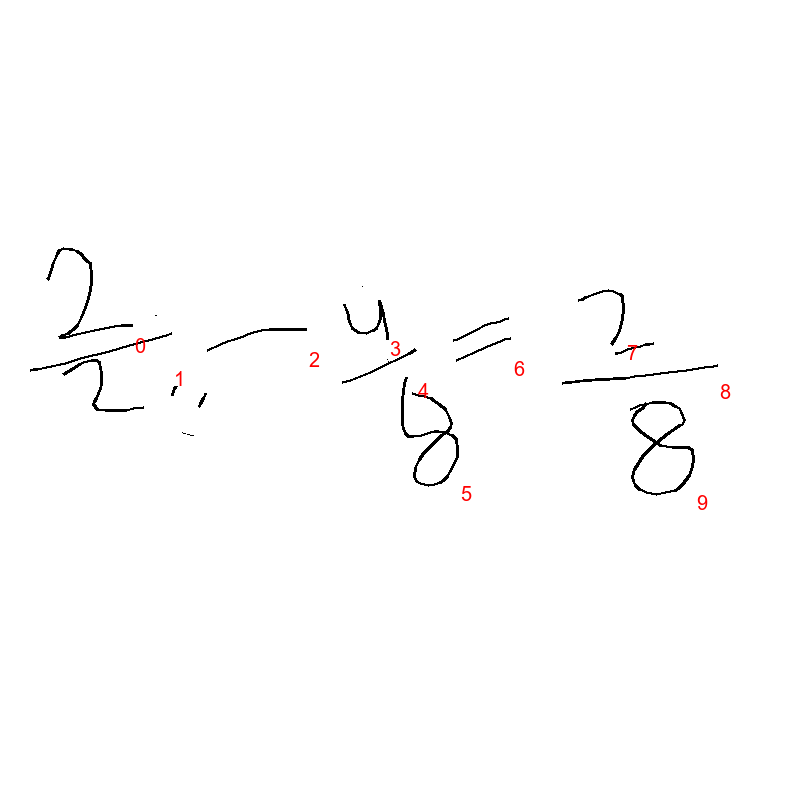 2/2 - 4/8 = 2/8
0 1 2 3 4 5 6 7 8 9